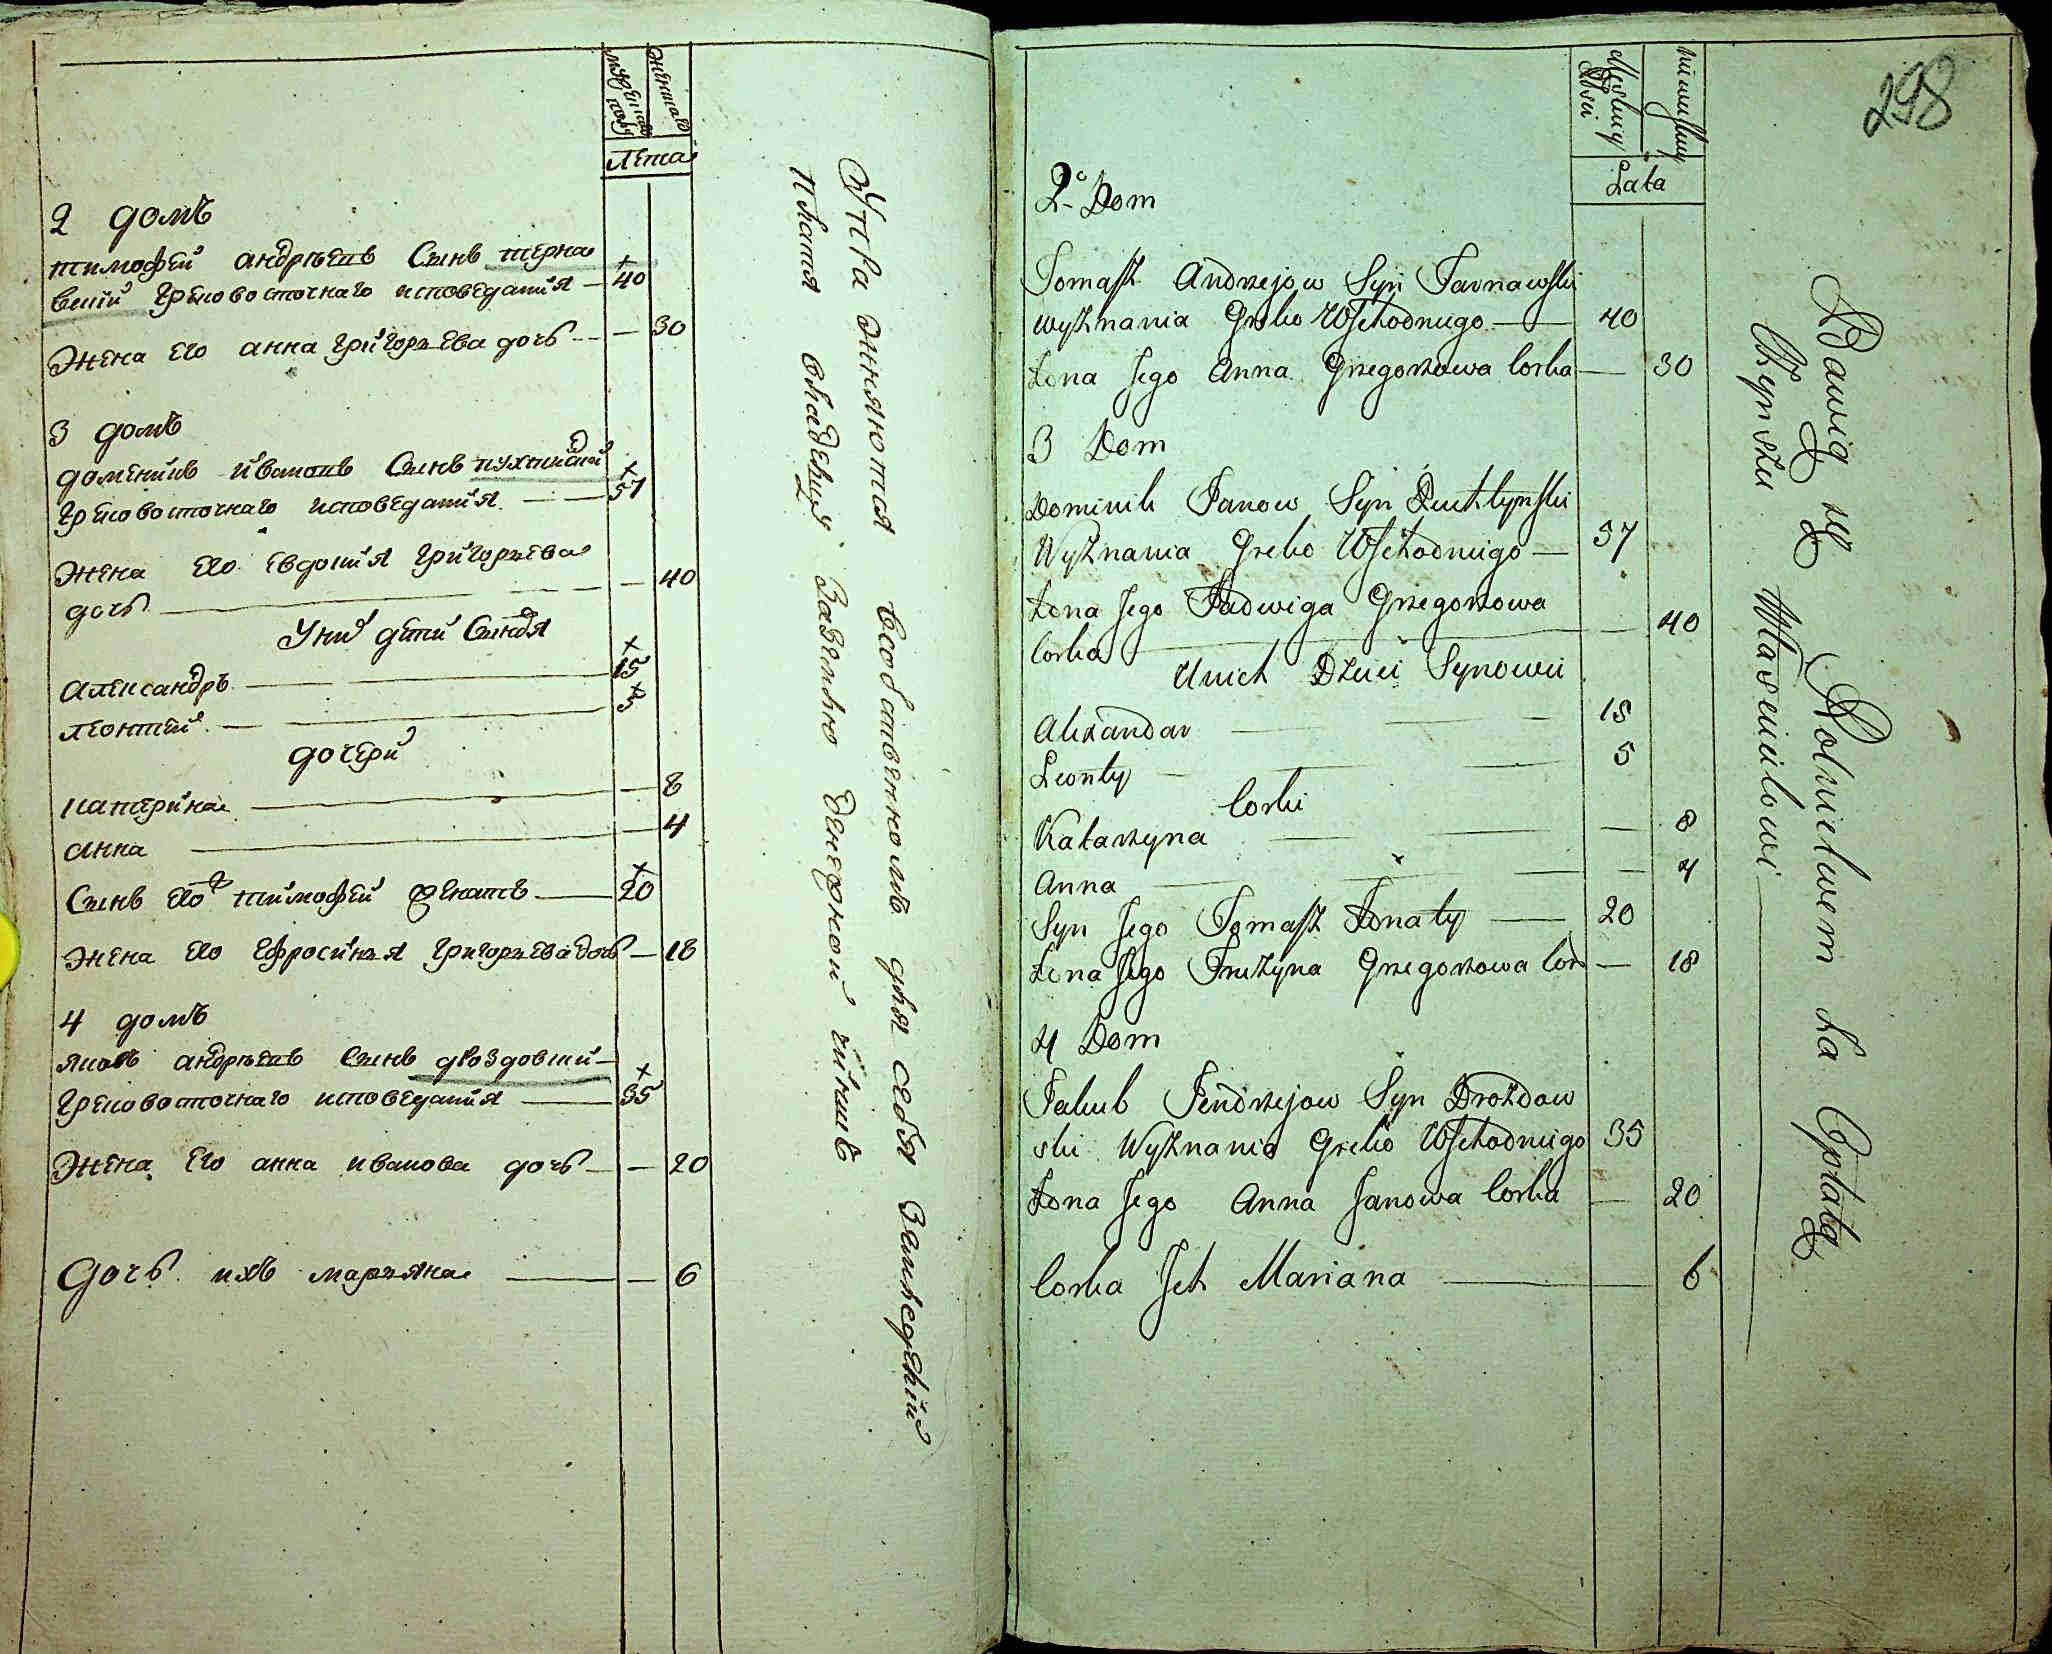 мужеска
полу
женска
Лета
2 домъ
тимофей андреевъ Сынъ терна
вский грековосточнаго исповедания — 40
Жена Его анна григорьева дочь — 30
3 домъ
доминикъ ивановъ Сынъ
грековосточнаго исповедания — 57
Жена Его Евдокия григорьева
дочь — 40
У них дети Синовя
александръ — 15
леонтей — 5
дочери
катерина — 8
анна — 4
Сынъ Его тимофей женатъ — 20
Жена Его Ефросинья григорьева дочь — 18
4 домъ
яковъ андреевъ Сынъ дроздовский
грековосточнаго исповедания — 35
Жена Его анна иванова дочь — 20
Дочь ихъ марьяна — 6
Упражняются собственномъ для себя земледелии
платя владельцу Земли денежной чиншъ
298
Męskiey
Płci
niewieśćiey
Lata
2. Dom
Tomasz Andrzejow Syn Tarnawski
wyznania Greko Wschodniego — 40
Żona Jego Anna Grzegorzowa Corka — 30
3 Dom
Dominik Janow Syn
Wyznania Greko Wschodniego — 57
Żona Jego Jadwiga Grzegorzowa
Corka — 40
U nich Dzieci Synowie
Alexandar — 15
Leonty — 5
Corki
Katarzyna — 8
Anna — 4
Syn Jego Tomasz Żonaty — 20
Żona Jego Fruzyna Grzegorzowa Cor — 18
4 Dom
Jakub Jendrzejow Syn Drozdow
ski Wyznania Greko Wschodniego 35
Żona Jego Anna Janowa Corka — 20
Corka Ich Mariana — 6
Bawią się Rolnictwem Za Opłatą
Czynszu Właścicielowi